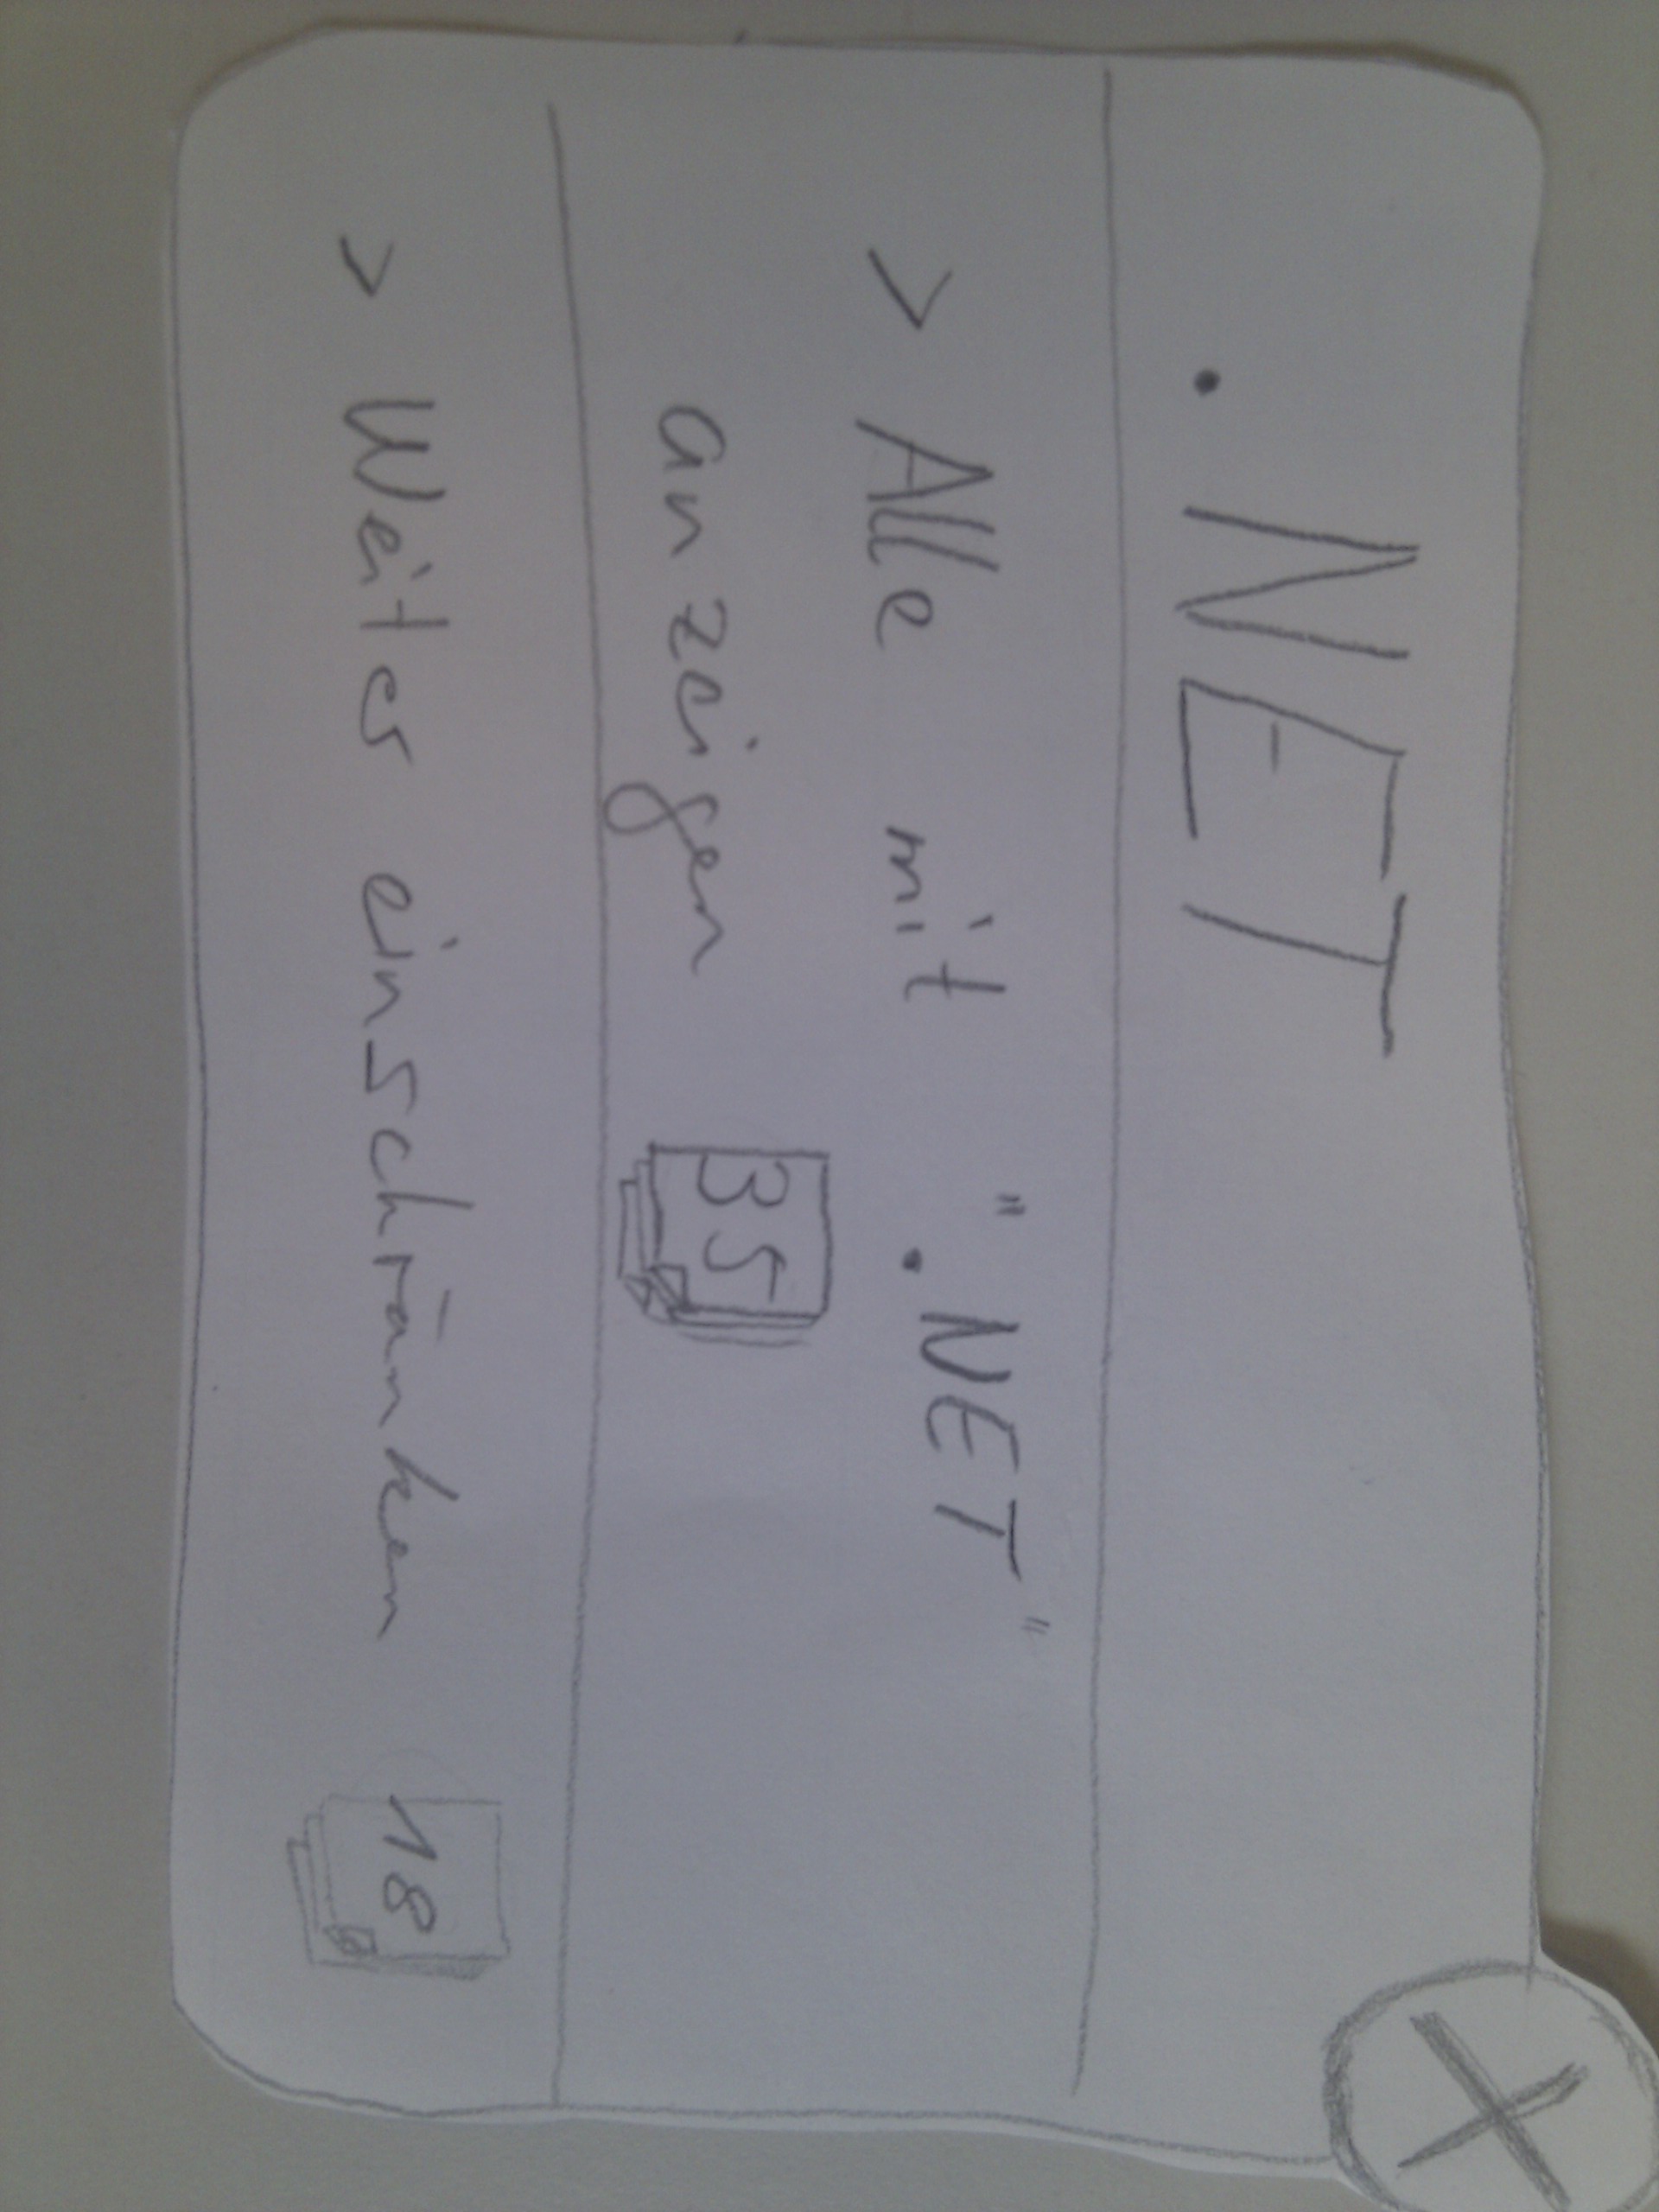 .NET
> Alle mit ".NET"
anzeigen 35
> Weiter einschränken 18
X